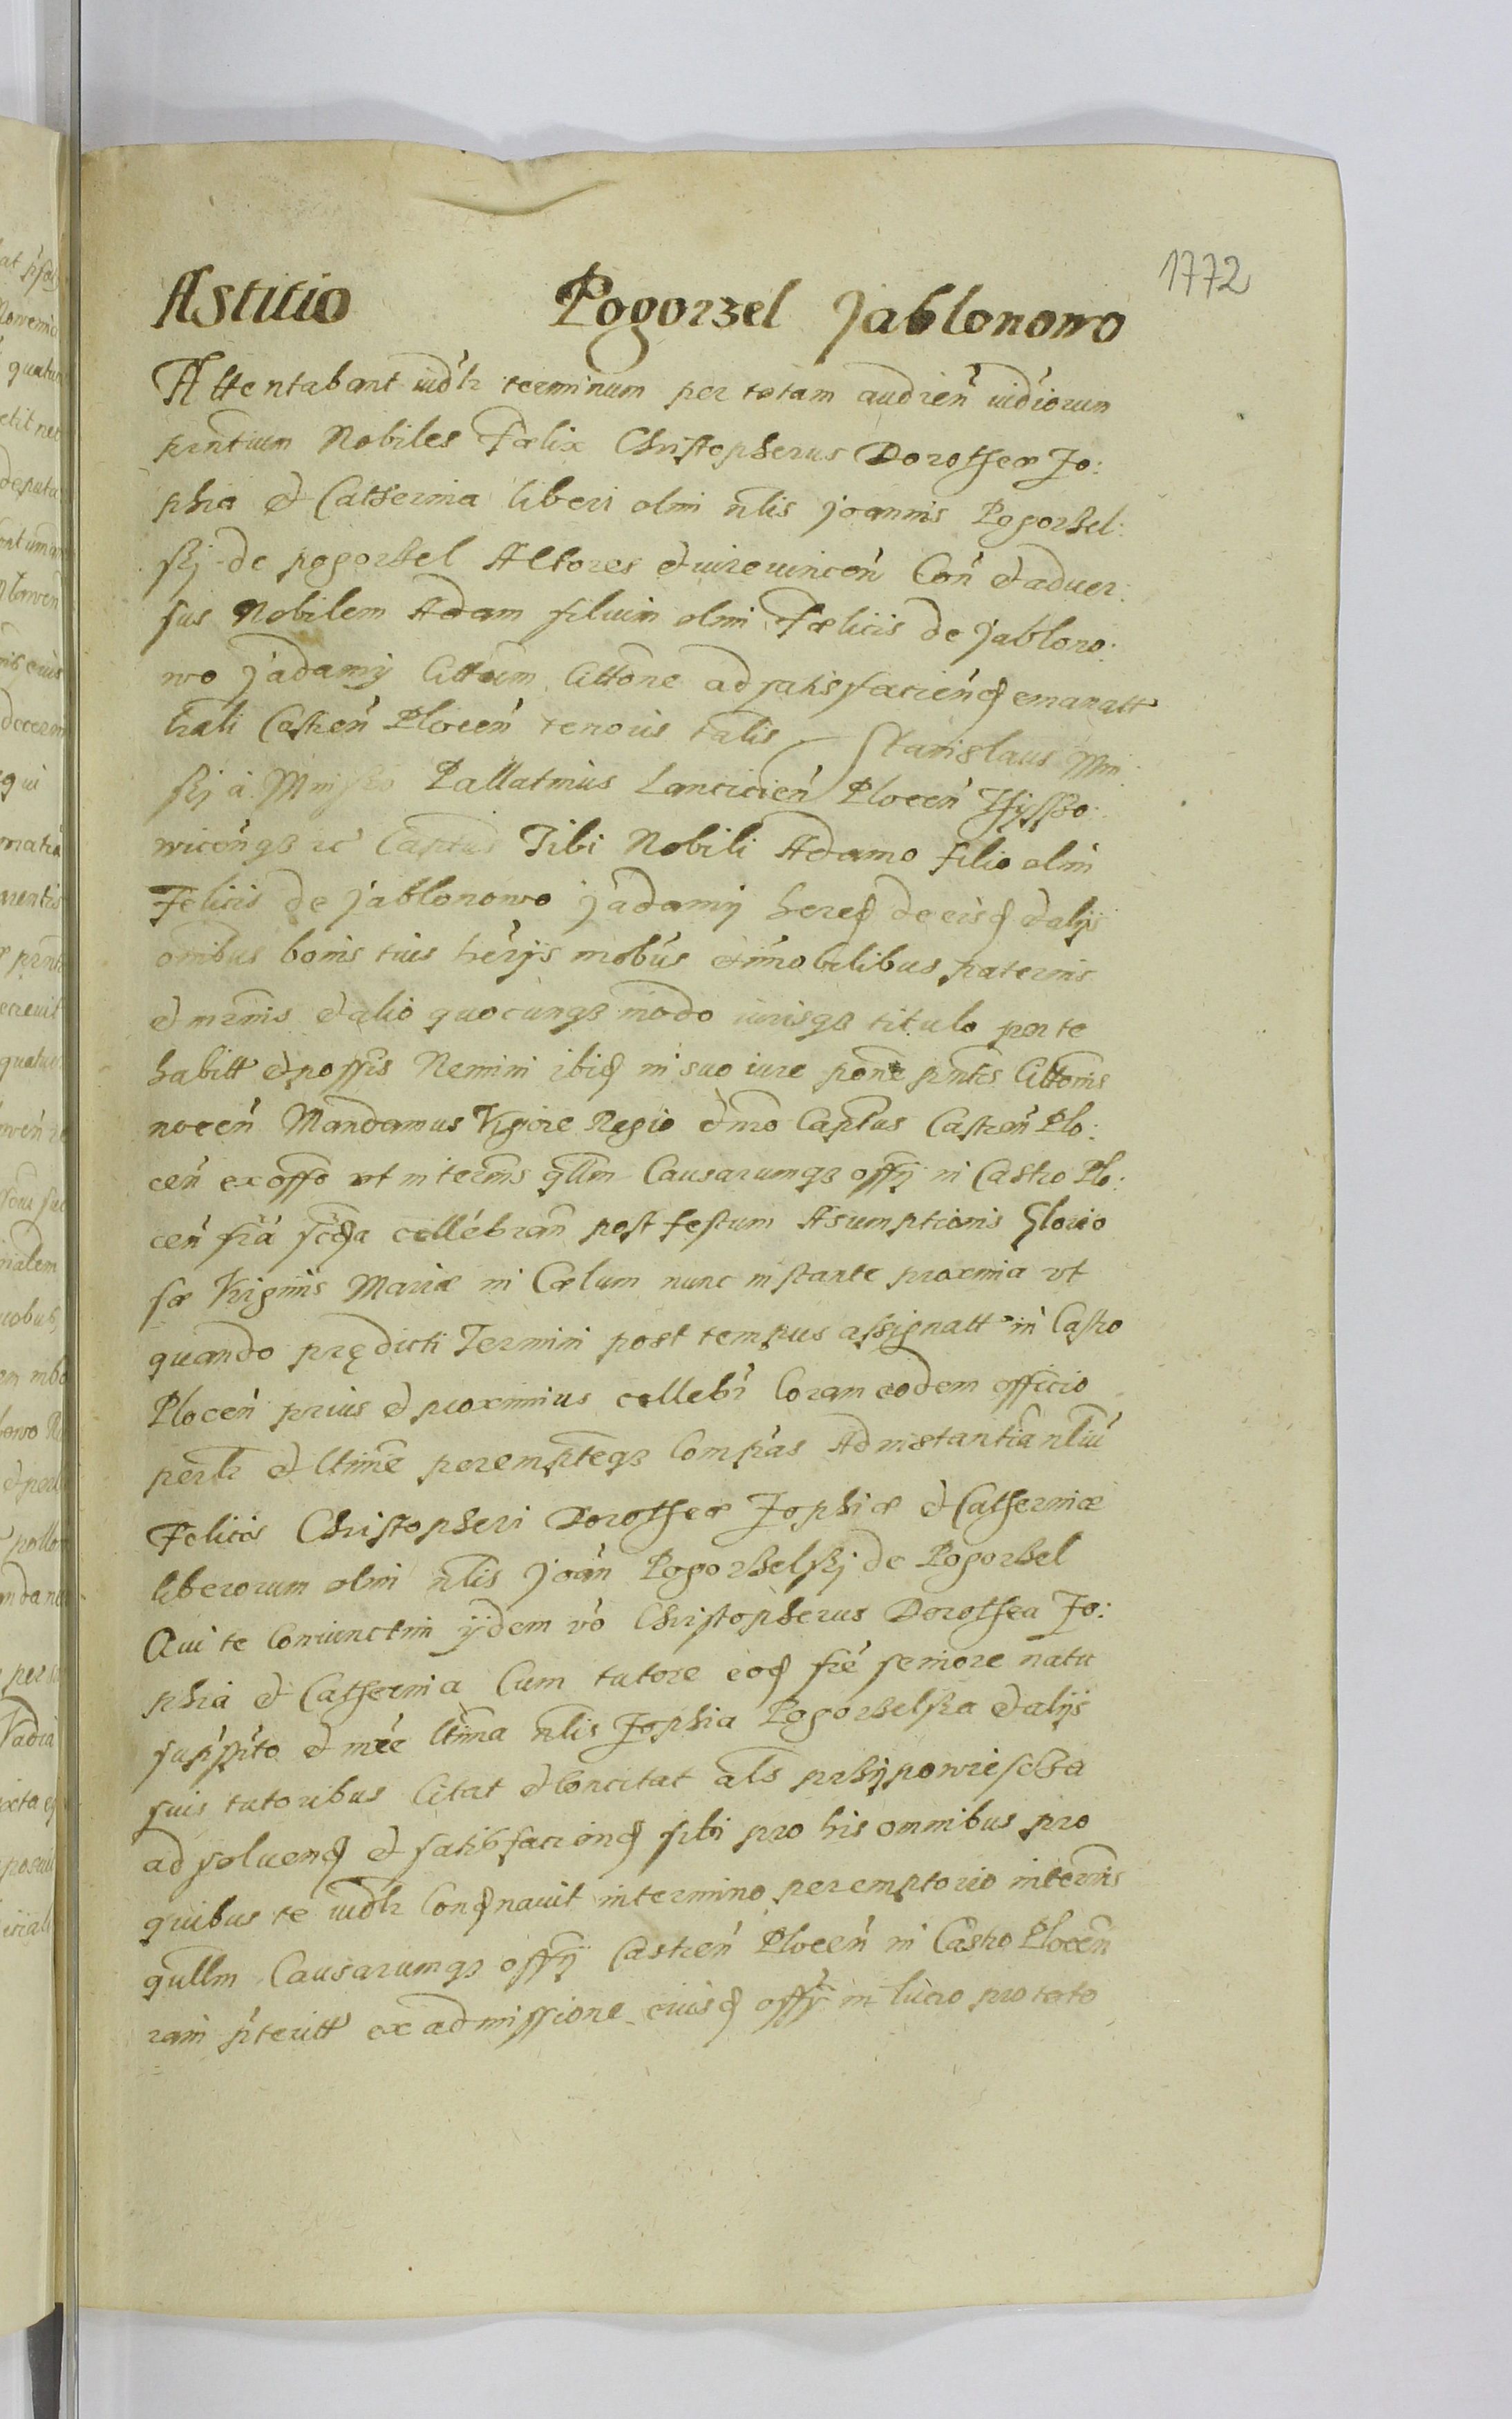 1772
Astitio Pogorzel Jablonowo
Attentabant iudr terminum per totam audień iudiorum
prntium Nobiles Fœlix Christopherus Dorothea Zo:
phia et Catherina liberi olim nlis Joannis Pogorzel:
skj de pogorzel Actores et iure uinceń Coń et aduer:
sus Nobilem Adam filium olim Fœlicis de Jablono:
wo Jadamÿ Cittum Cittone ad satisfacienđ emanatt
trali Castreń Ploceń tenoris talis Stanislaus Min
skj à Minsko Pallatinus Lancicień Ploceń
wiceńqȝ zc Captus Tibi Nobili Adamo filio olim
Felicis de Jablonowo Jadamÿ heređ de eisđ et alÿs
omibus bonis tuis herÿs mobus et imobilibus paternis
et mrnis et alio quocunqȝ modo iurisqȝ titulo per te
habitt et possis Nemini ibiđ in suo iure pone pntis Cittonis
noceń Mandamus Vigore Regio et mro Captus Castreń Plo:
ceń ex offo vt in termis qllm Causarumqȝ offÿ in Castro Plo:
ceń fria scđa cellebran post festum Asumptionis Glorio
sæ Virginis Mariæ in Cœlum nunc instante proxmia vt
quando prędicti Termini post tempus assignatt in Castro
Ploceń prius et proximius cellebr Coram eodem officio
perlr et ltime perempteqȝ Compras Ad instantia nliu
Felicis Christopheri Dorotheæ Zophiæ et Catherinæ
liberorum olim nlis Joan Pogorzelskj de Pogorzel
Qui te Coniunctim ÿdem vo Christopherus Dorothea Zo:
phia et Catherina Cum tutore eođ fre seniore natu
suprssito et mre ltima nlis Zophia Pogorzelska et alÿs
suis tutoribus Citat et Concitat als przÿpowiescza
ad soluenđ et satisfacienđ sibi pro his omnibus pro
quibus te iudr Conđnauit in termino peremptorio in termis
qullm Causarumqȝ offÿ Castreń Ploceń in Castro Ploceń
ram prteritt ex admissione eiusđ offÿ in lucro pro toto